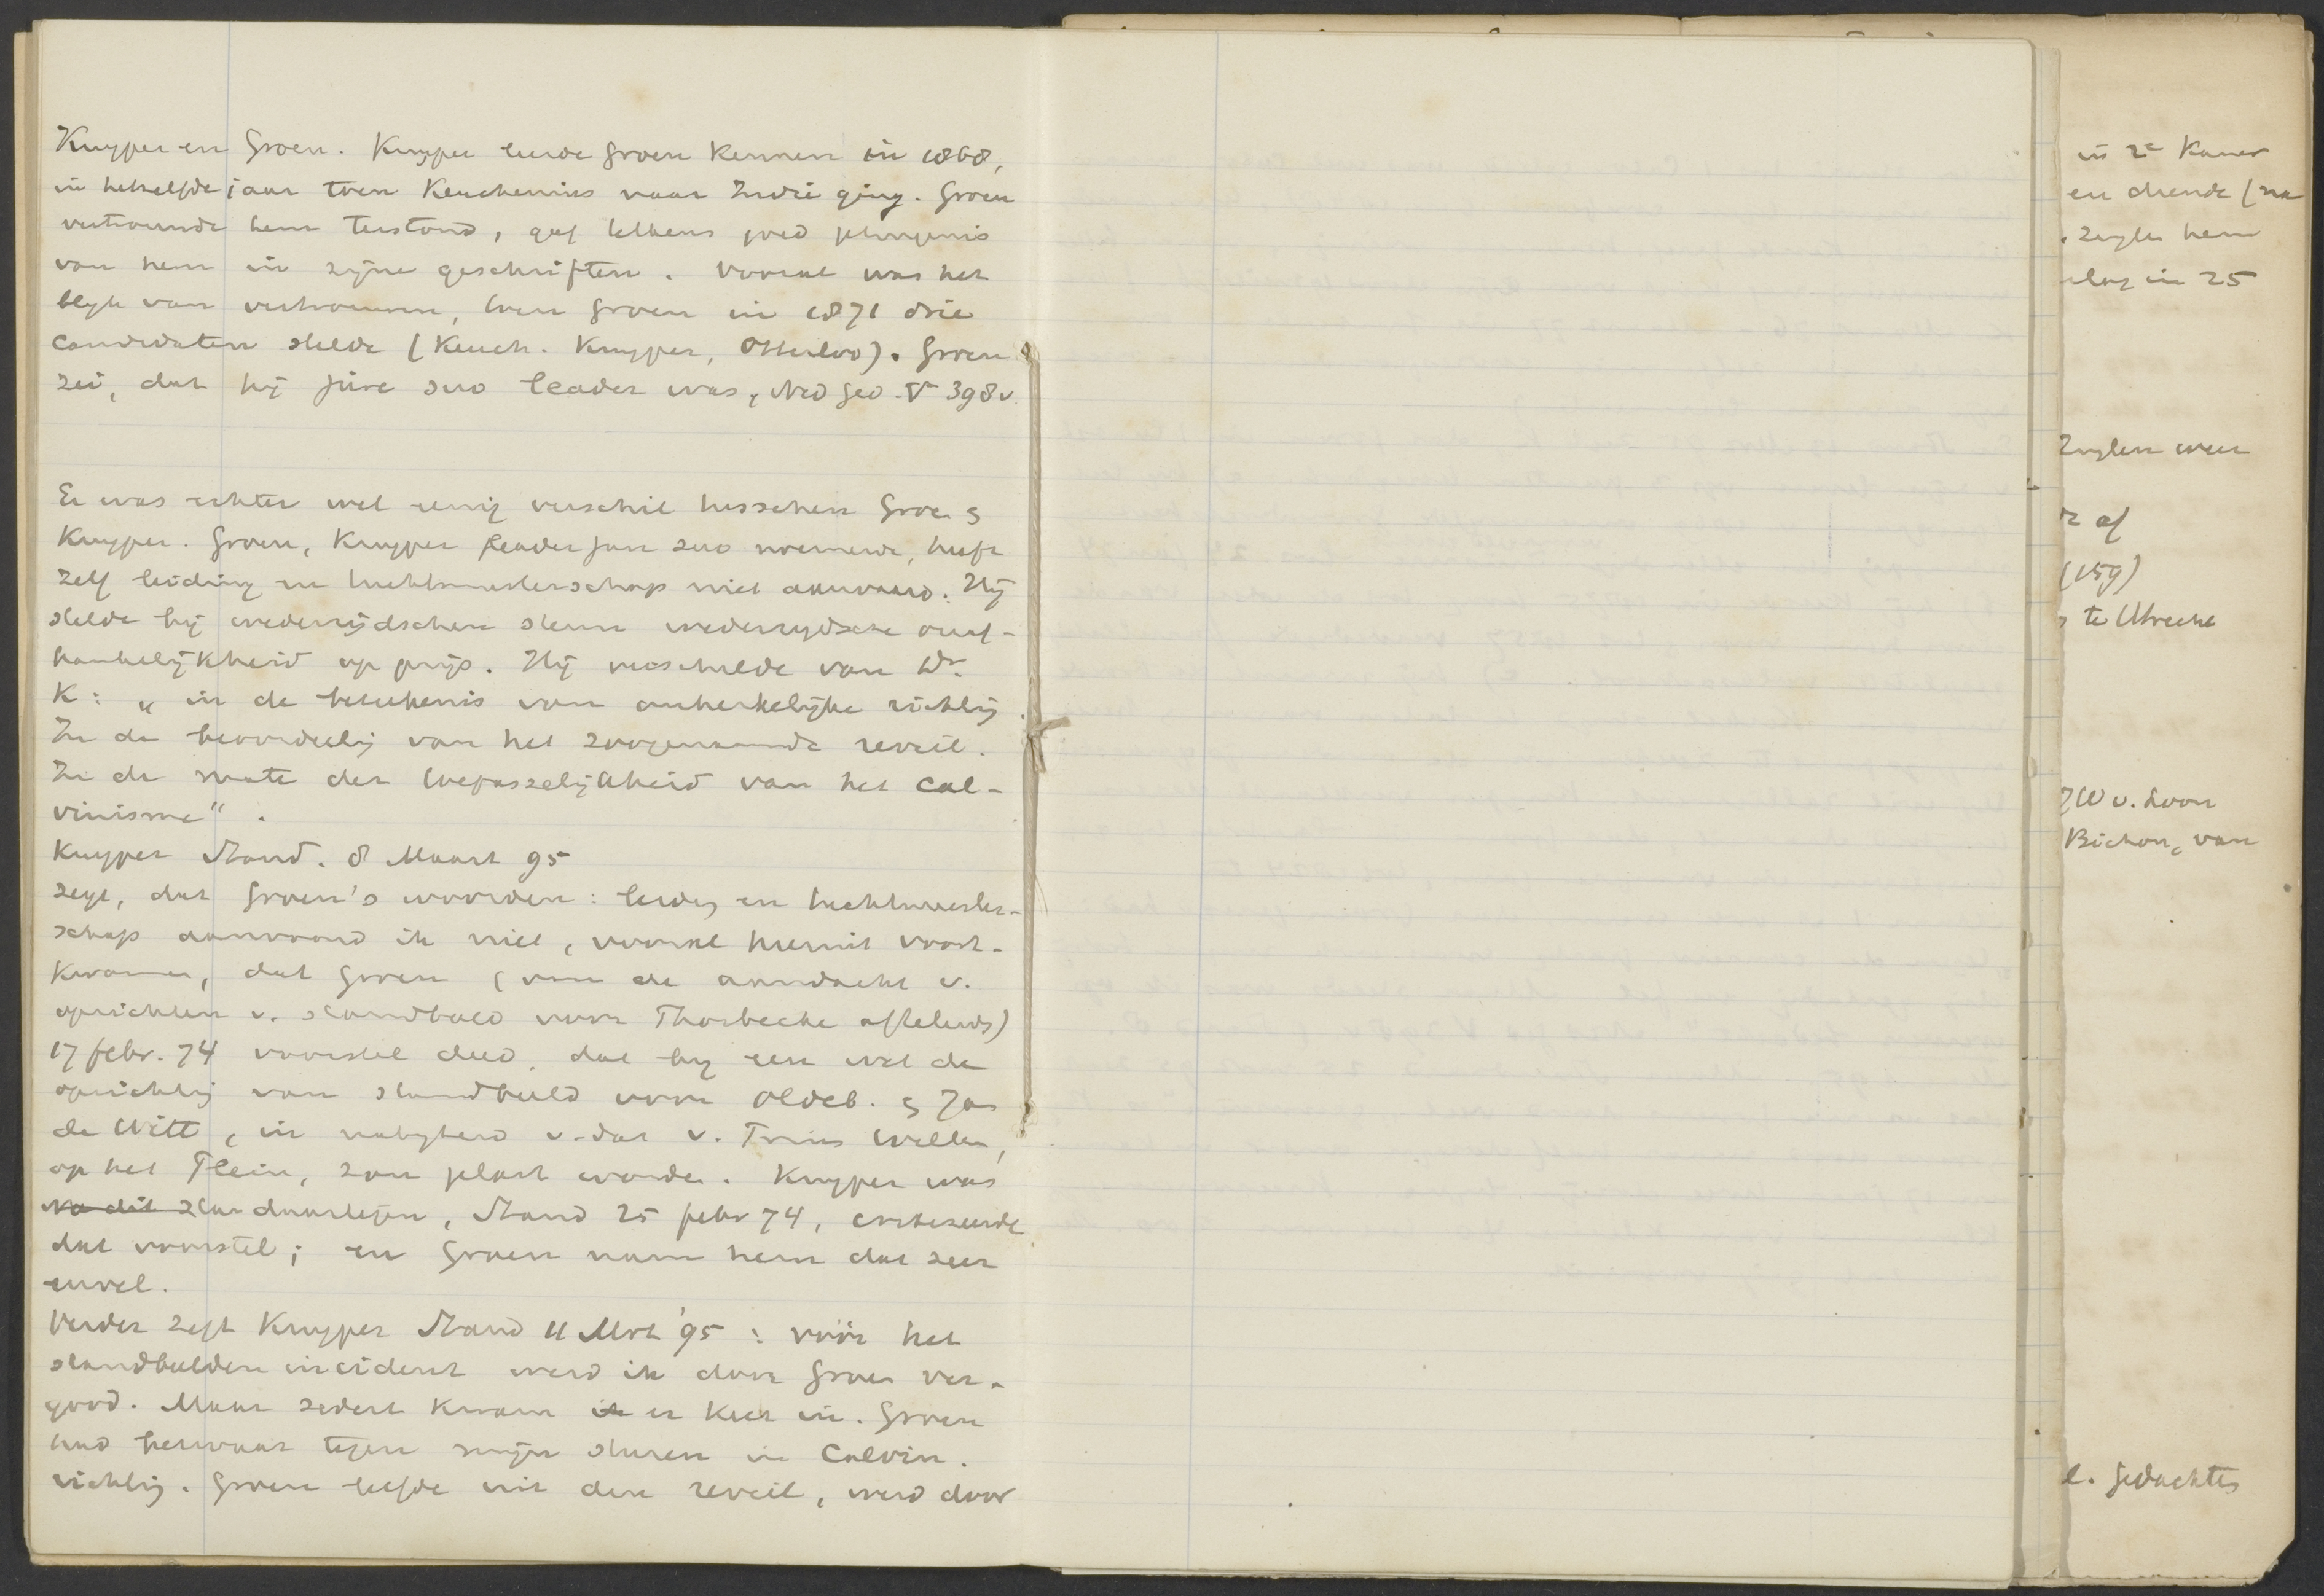 Kuyper en Groen. Kuyper leerde Groen kennen in 1868,
in hetzelfde jaar toen Keuchenius naar Indië ging. Groen
vertrouwde hem terstond, gaf telkens goed getuigenis
van hem in zijne geschriften. Vooral was het
blijk van vertrouwen, toen Groen in 1871 drie
candidaten stelde (Keuch. Kuyper, Otterloo). Groen
zei, dat hij jure suo leader was, Ned Ged. V 398v.
Er was echter wel eenig verschil tusschen Groen &
Kuyper. Groen, Kuyper leader jure suo noemende, heeft
zelf leiding en tuchtmeesterschap niet aanvaard. Hij
stelde bij wederzijdschen steun wederzydsche onaf-
hankelijkheid op prijs. Hij verschilde van Dr.
K: „in de beteekenis van onkerkelijke richting.
In de beoordeelig van het zoogenaamde reveil.
In de mate der toepasselijkheid van het Cal-
vinisme".
Kuyper Stand. 8 Maart 95
zegt, dat Groen's woorden: leiding en tuchtmeester-
schap aanvaard ik niet, vooral hieruit voort-
kwamen, dat Groen (om de aandacht v.
oprichten v. standbeeld voor Thorbecke afteleid)
17 febr. 74 voorstel deed, dat bij een wet de
oprichtig van standbeeld voor Oldeb. & Jan
de Witt, in nabyheid v. dat v. Prins Willem,
op het Plein, zou plaats worden. Kuyper was
na dit daartegen, Stand 25 febr 74, critiseerde
dat voorstel; en Groen nam hem dat zeer
euvel.
Verder zegt Kuyper Stand 11 Mrt '95: vóór het
standbeelden incident werd ik door Groen ver-
good. Maar sedert kwam er keer in. Groen
had bezwaar tegen mijn sturen in Calvin.
richtig. Groen leefde uit den reveil, werd door
in 2e Kamer
en diende (na
hem
in 25
weer
af
(159)
te Utrecht
JW v. Loon
Bichon, van
l. gedachtes